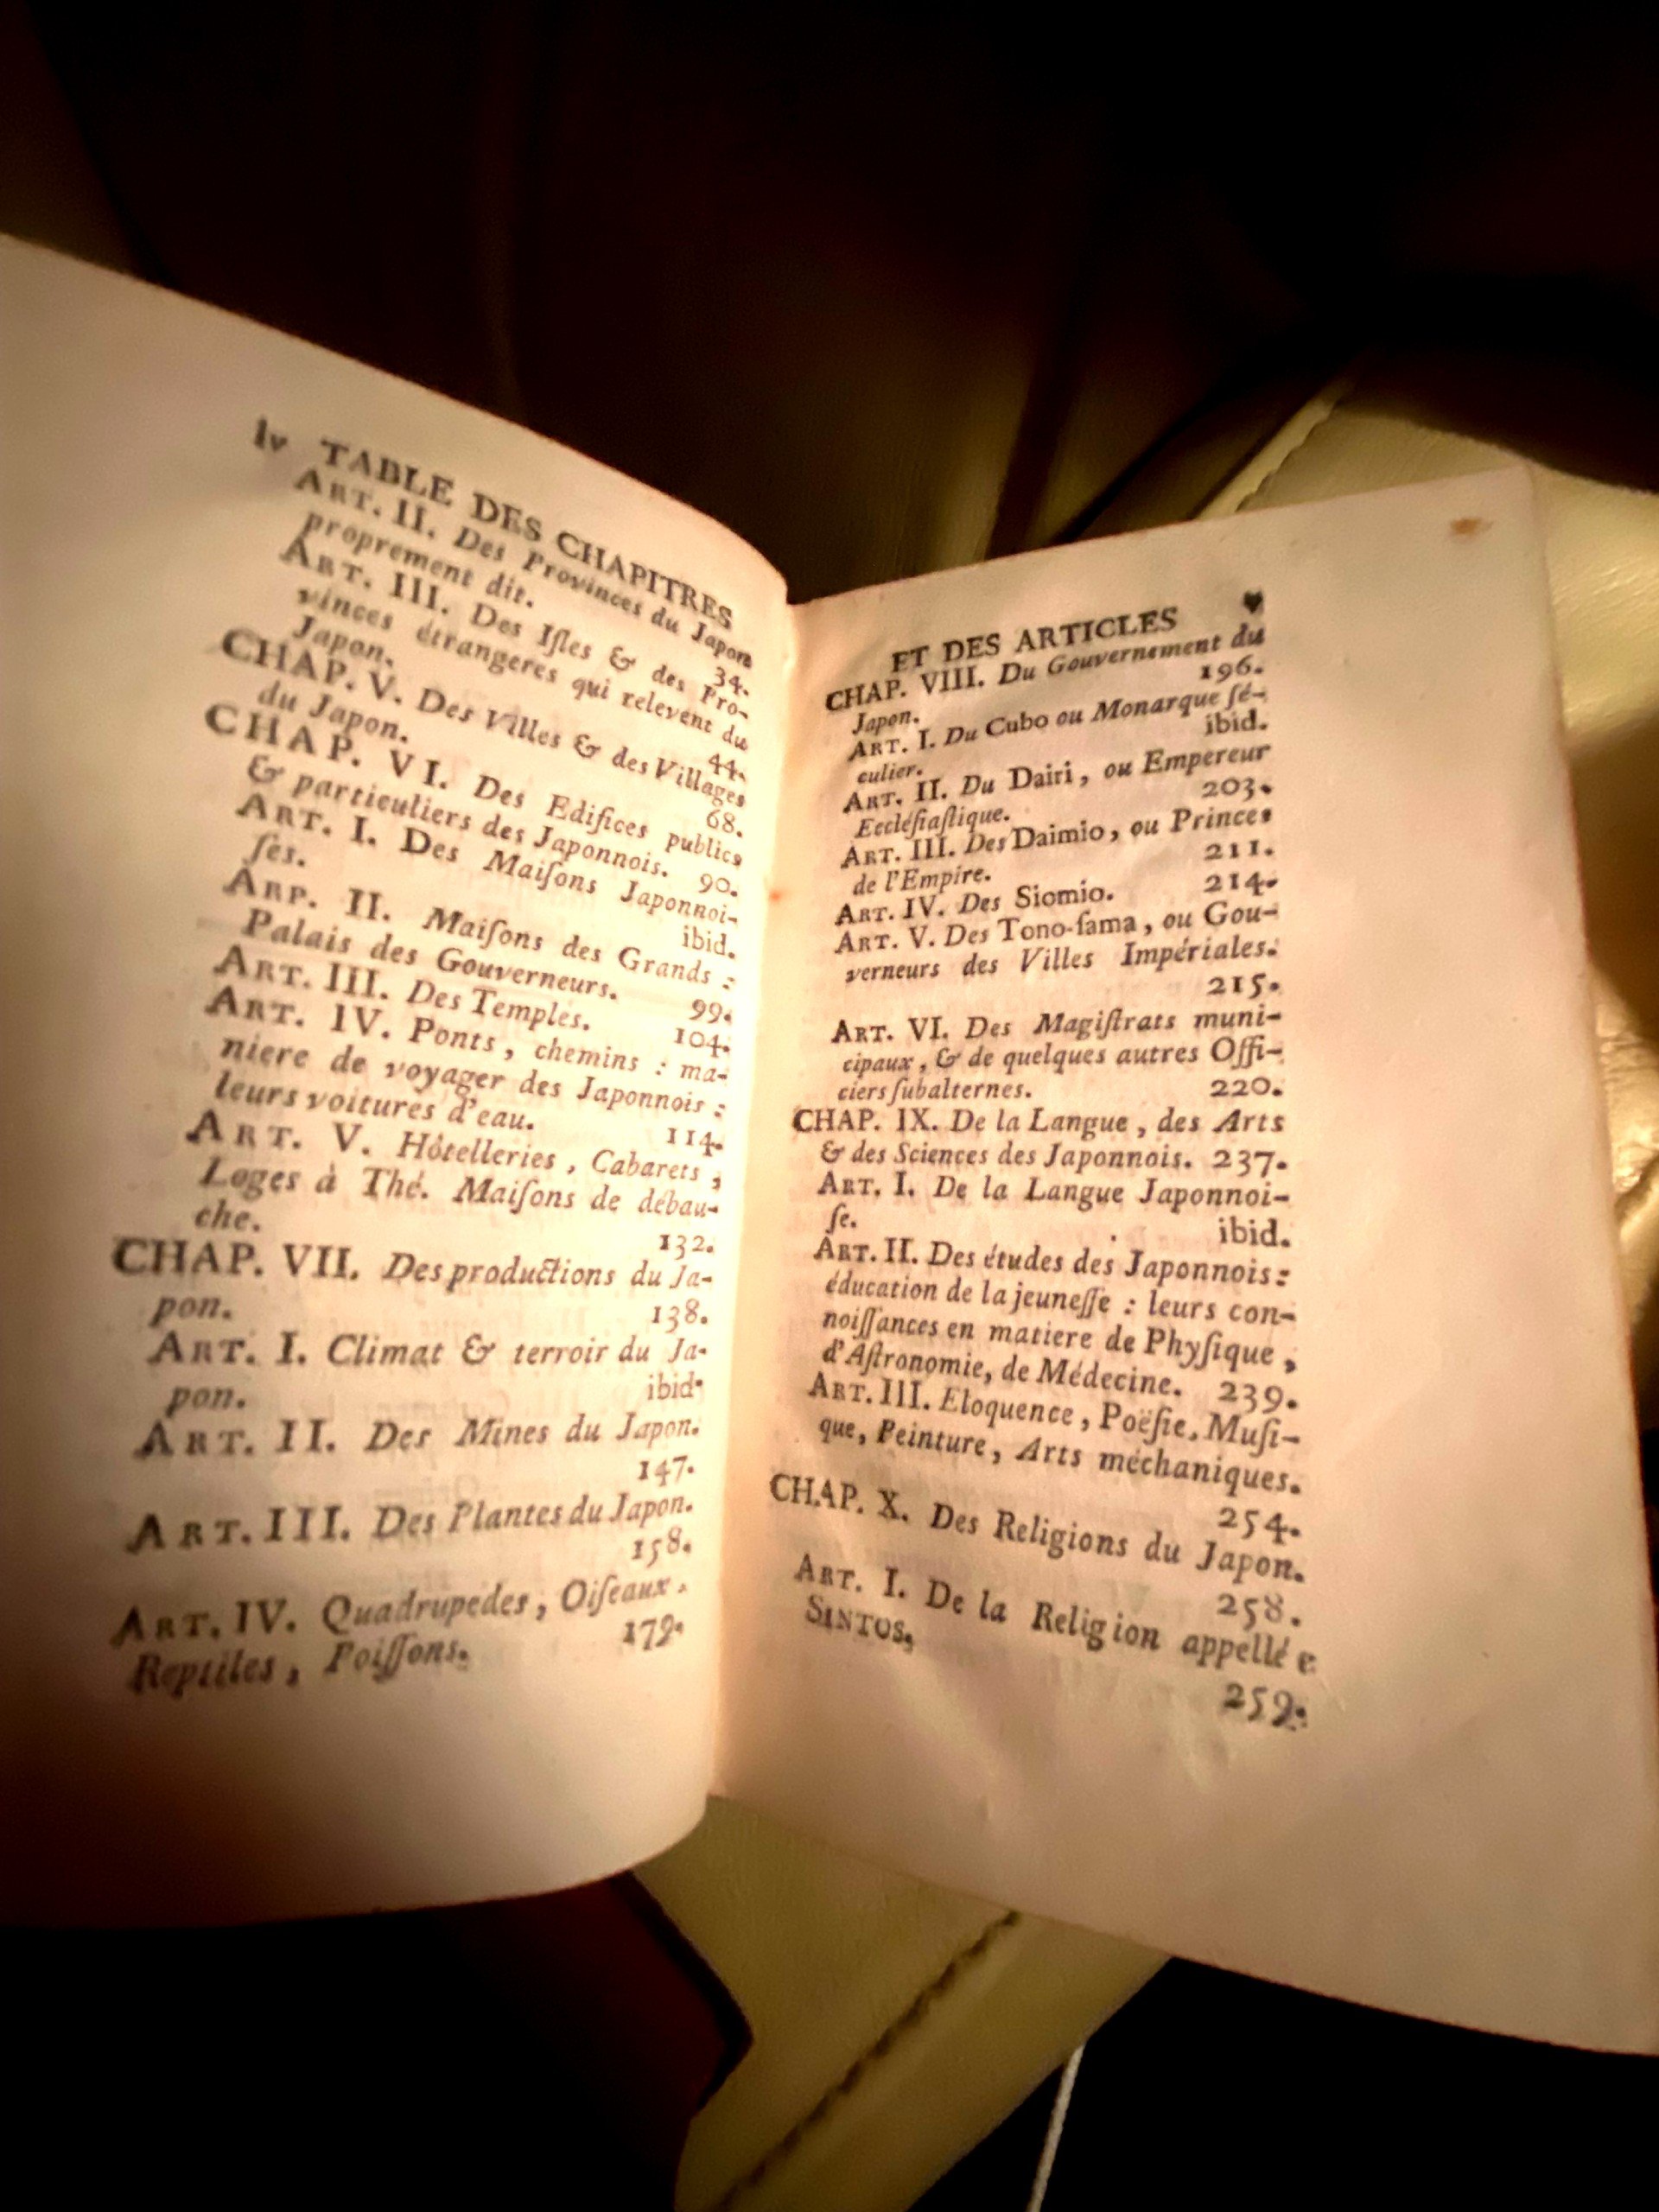 iv TABLE DES CHAPITRES
ART. II. Des Provinces du Japon
proprement dit. 34.
ART. III. Des Iſles & des Pro-
vinces étrangeres qui relevent du
Japon. 44.
CHAP. V. Des Villes & des Villages
du Japon. 68.
CHAP. VI. Des Edifices publics
& particuliers des Japonnois. 90.
ART. I. Des Maiſons Japonnoi-
ſes. ibid.
ARP. II. Maiſons des Grands :
Palais des Gouverneurs. 99.
ART. III. Des Temples. 104.
ART. IV. Ponts, chemins : ma-
niere de voyager des Japonnois :
leurs voitures d'eau. 114.
ART. V. Hôtelleries, Cabarets,
Loges à Thé. Maiſons de débau-
che. 132.
CHAP. VII. Des productions du Ja-
pon. 138.
ART. I. Climat & terroir du Ja-
pon. ibid.
ART. II. Des Mines du Japon.
147.
ART. III. Des Plantes du Japon.
158.
ART. IV. Quadrupedes, Oiſeaux.
Reptiles, Poiſſons. 179.
ET DES ARTICLES v
CHAP. VIII. Du Gouvernement du
Japon. 196.
ART. I. Du Cubo ou Monarque ſé-
culier. ibid.
ART. II. Du Dairi, ou Empereur
Eccléſiaſtique. 203.
ART. III. Des Daimio, ou Princes
de l'Empire. 211.
ART. IV. Des Siomio. 214.
ART. V. Des Tono-ſama, ou Gou-
verneurs des Villes Impériales.
215.
ART. VI. Des Magiſtrats muni-
cipaux, & de quelques autres Offi-
ciers ſubalternes. 220.
CHAP. IX. De la Langue, des Arts
& des Sciences des Japonnois. 237.
ART. I. De la Langue Japonnoi-
ſe. ibid.
ART. II. Des études des Japonnois :
éducation de la jeuneſſe : leurs con-
noiſſances en matiere de Phyſique,
d'Aſtronomie, de Médecine. 239.
ART. III. Eloquence, Poëſie, Muſi-
que, Peinture, Arts méchaniques.
254.
CHAP. X. Des Religions du Japon.
258.
ART. I. De la Religion appellée
SINTOS, 259.